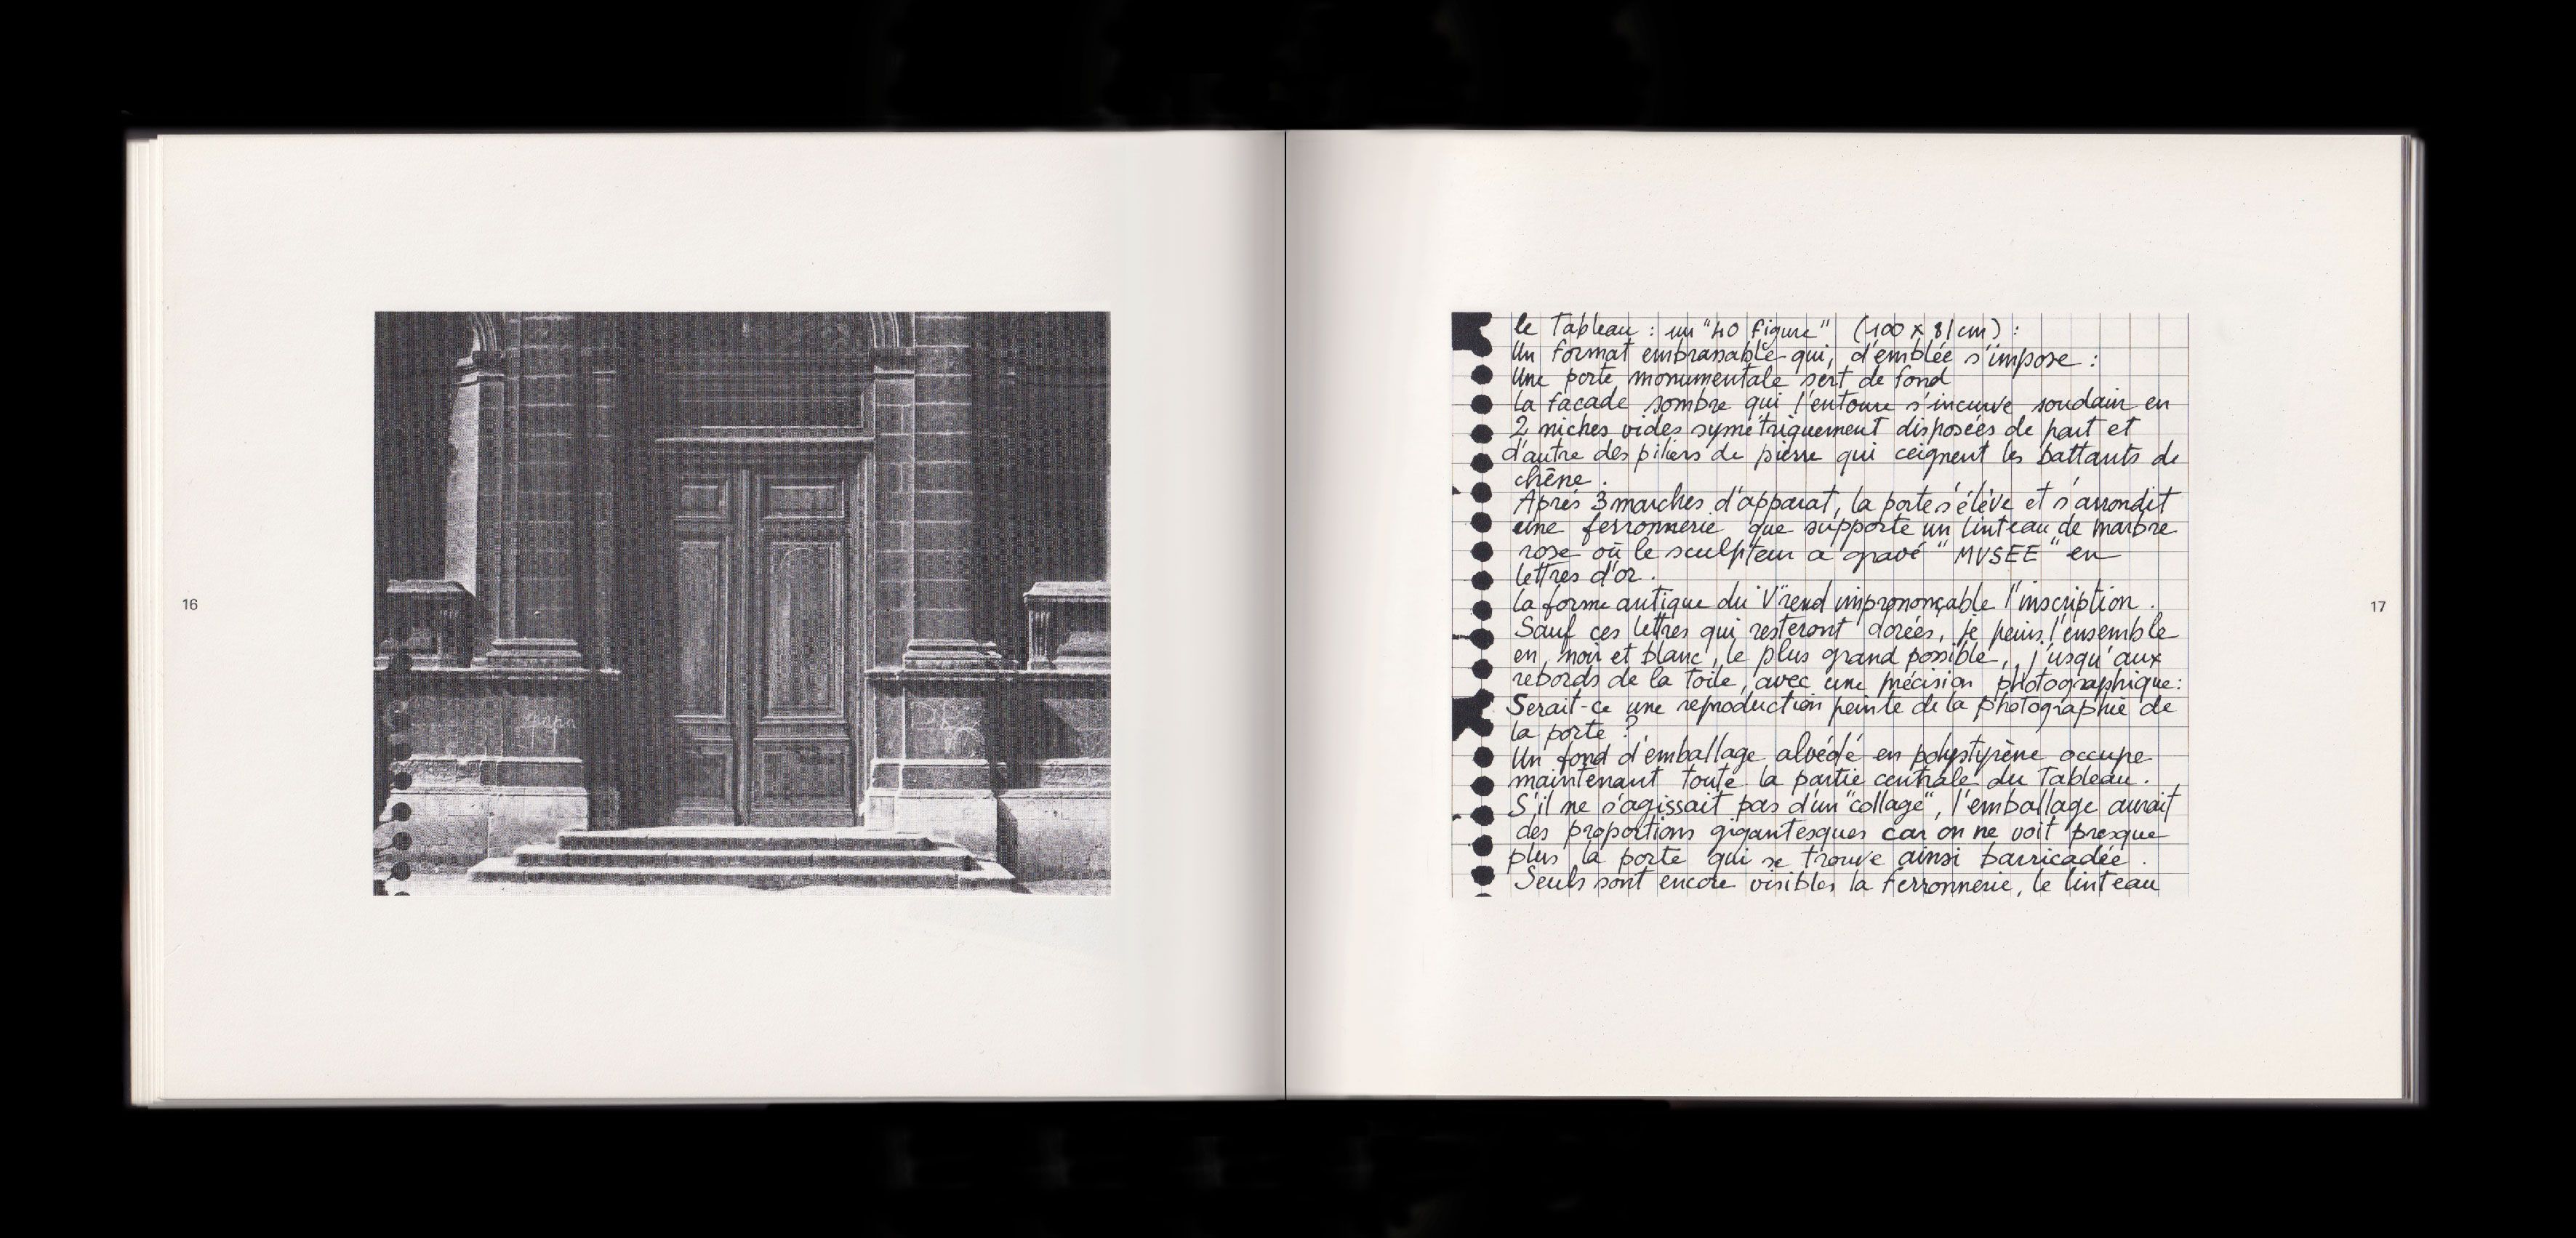 16
le Tableau : un "40 figure" (100 x 81 cm) :
Un format embrassable qui, d'emblée s'impose :
Une porte monumentale sert de fond
la facade sombre qui l'entoure s'incurve soudain en
2 niches vides symétriquement disposées de part et
d'autre des piliers de pierre qui ceignent les battants de
chêne .
Après 3 marches d'apparat, la porte s'élève et s'arrondit
une ferronnerie que supporte un linteau de marbre
rose où le sculpteur a gravé "MVSEE" en
lettres d'or .
la forme antique du V rend imprononçable l'inscription .
Sauf ces lettres qui resteront dorées, je peins l'ensemble
en noir et blanc, le plus grand possible, jusqu'aux
rebords de la toile, avec une précision photographique :
Serait-ce une reproduction peinte de la photographie de
la porte ?
Un fond d'emballage alvéolé en polystyrène occupe
maintenant toute la partie centrale du Tableau .
S'il ne s'agissait pas d'un "collage", l'emballage aurait
des proportions gigantesques car on ne voit presque
plus la porte qui se trouve ainsi barricadée .
Seuls sont encore visibles la ferronnerie, le linteau
17